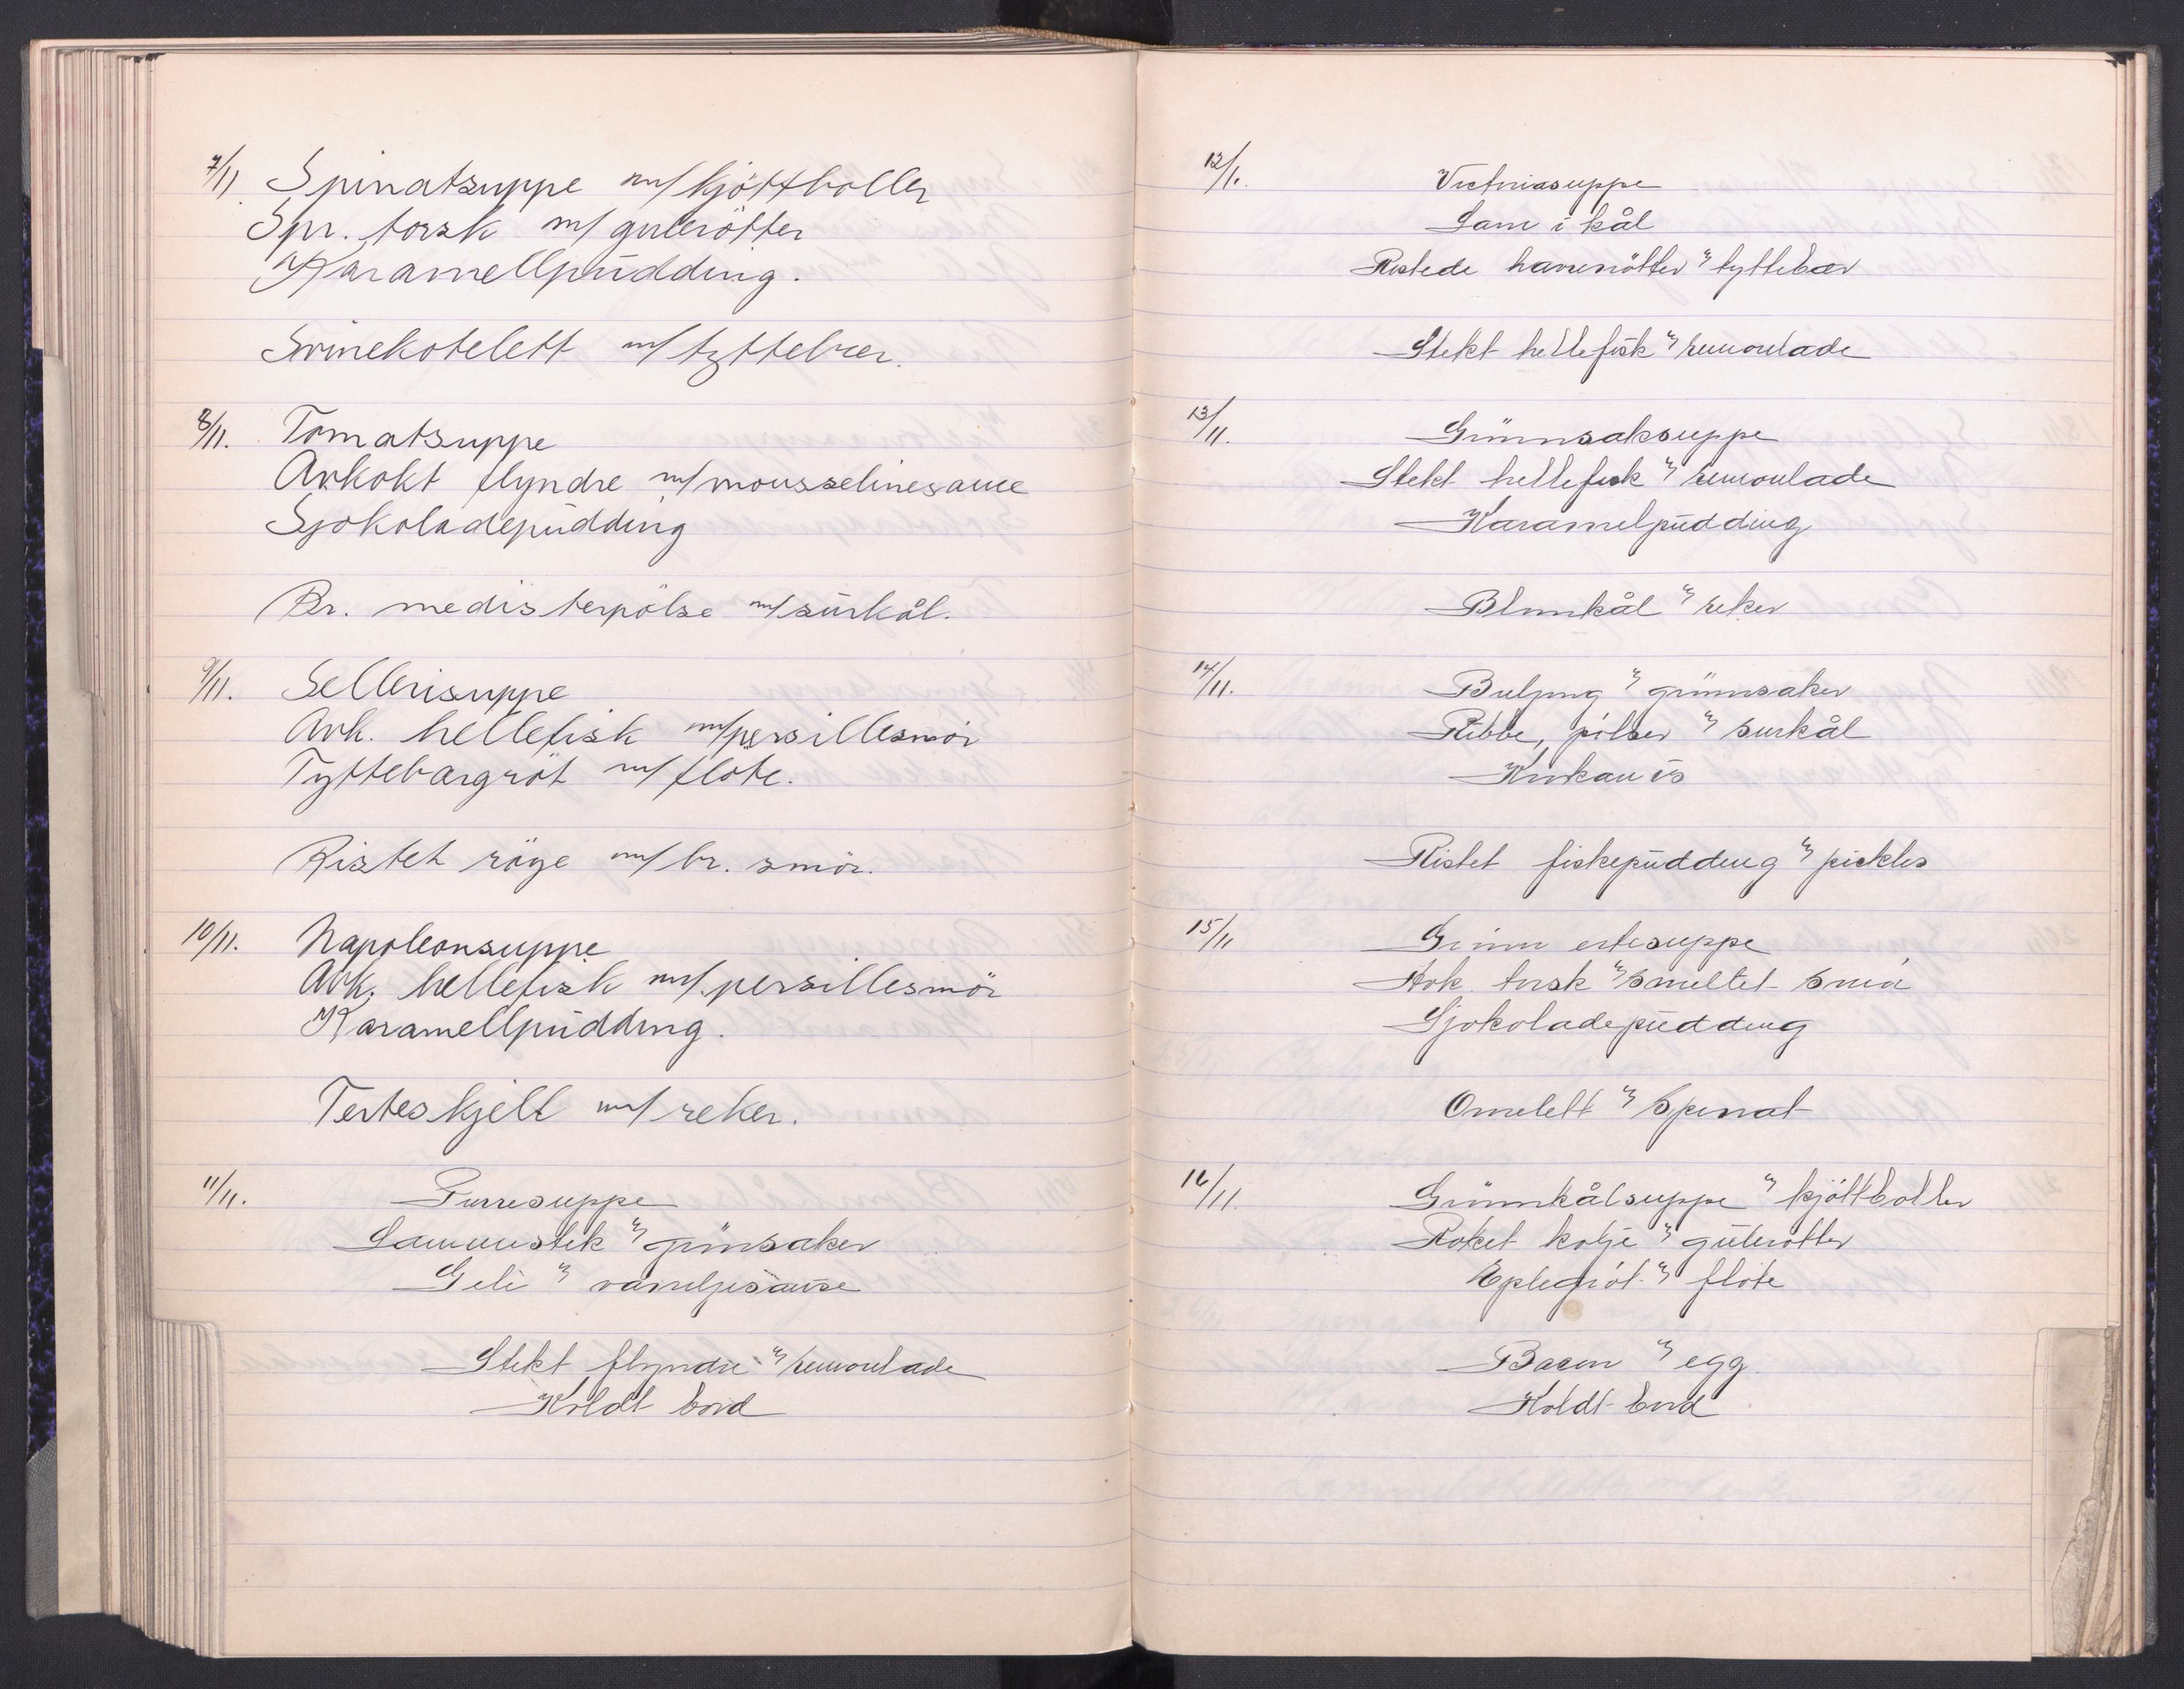 7/11. Spinatsuppe m/kjöttboller
Spr. torsk m/ gulerötter
Karamellpudding.
Svinekotelett m/ tyttebær.
8/11. Tomatsuppe
Avkokt flyndre m/mousselinesause
Sjokoladepudding
Br. medisterpölse m/surkål.
9/11. Sellerisuppe
Avk. hellefisk m/persillesmör
Tyttebærgröt m/flöte.
Ristet röye m/ br. smör.
10/11. Napoleonsuppe
Avk. hellefisk m/ persillesmör
Karamellpudding.
Terteskjell m/ reker.
11/11. Purresuppe
Lammestek m/ grönsaker
Gele m/ vaniljesause
Stekt flyndre m/ remoulade
Koldt bord
12/11. Victoriasuppe
Lam i kål
Ristede havrenötter m/ tyttebær
Stekt hellefisk m/ remoulade
13/11. Grünnsaksuppe
Stekt hellefisk m/ remoulade
Karamelpudding
Blomkål m/ reker
14/11. Buljong m/ grünnsaker
Ribbe, pölser m/ surkål
Krokan is
Ristet fiskepudding m/ pickles
15/11 Grönn ertesuppe
Avk. torsk m/ smeltet smör
Sjokoladepudding
Omelett m/ spinat
16/11. Grünnkålsuppe m/ kjöttboller
Röket kolje m/ gulerötter
Eplegröt m/ flöte
Bacon m/ egg.
Koldt bord